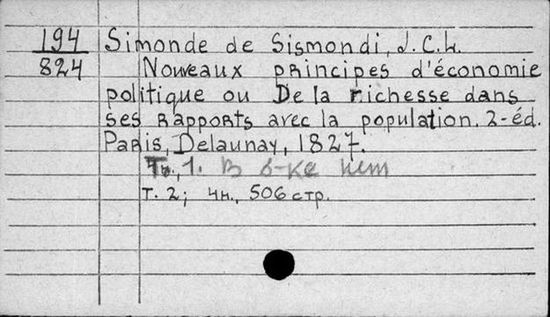 194 Simonde de Sismondi, J.C.L.
824 Nouveaux principes d'économie
politique ou De la richesse dans
ses rapports avec la population. 2-éd.
Paris, Delaunay, 1827.
Т. 1. В б-ке нет
Т. 2; 4н., 506 стр.